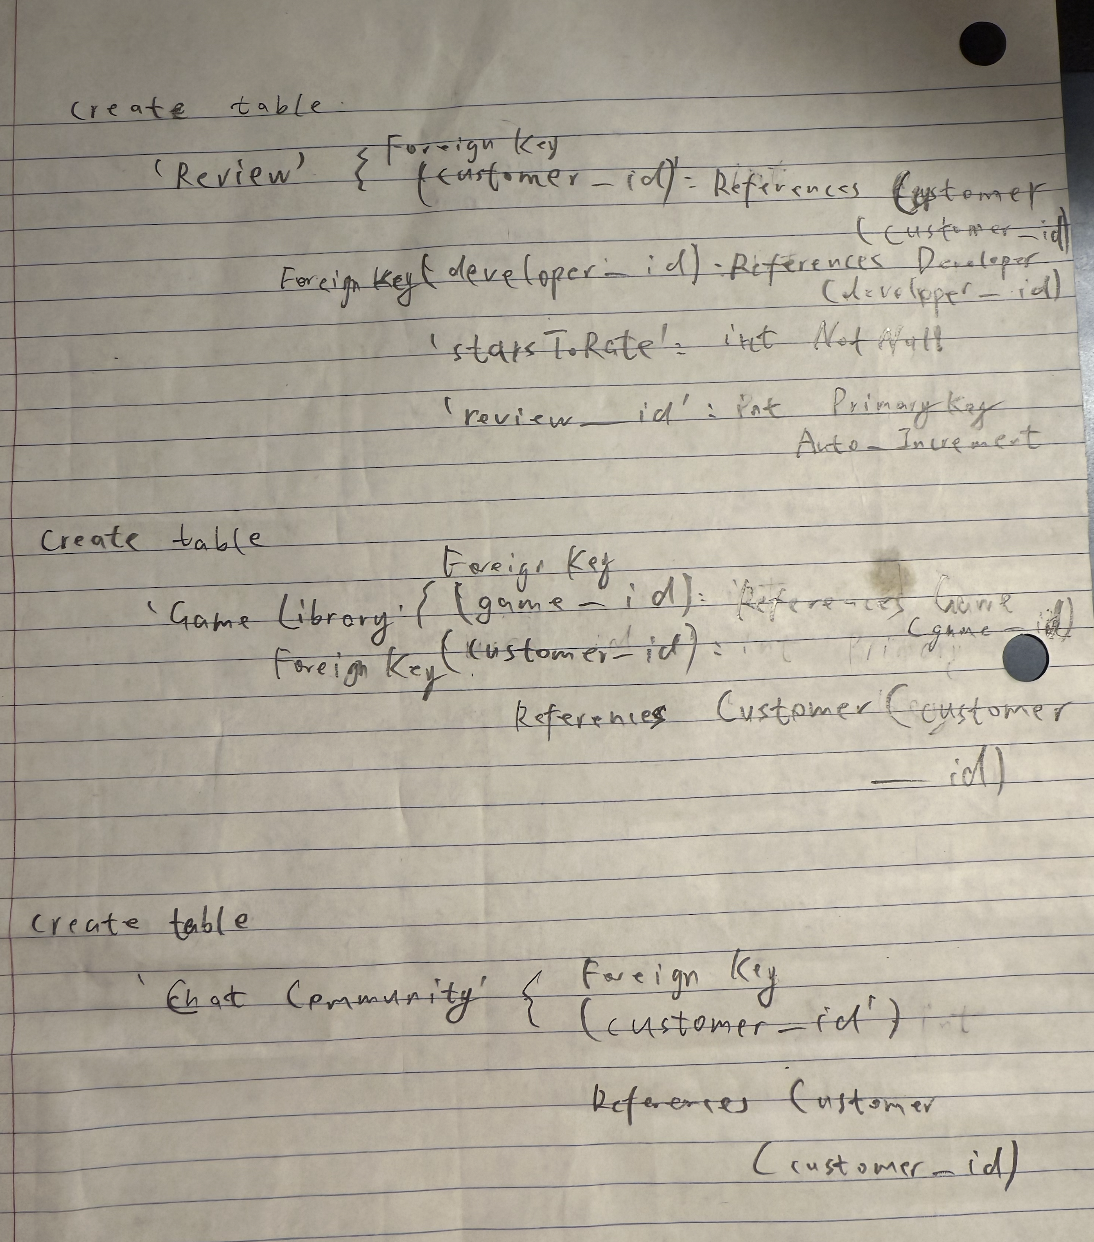 Create table
'Review' { Foreign Key
(customer_id)= References Customer
(customer_id)
Foreign Key(developer_id). References Developer
(developer_id)
'starsToRate': int Not Null
'review_id': int Primary Key
Auto_Increment
Create table
Foreign Key
'Game Library' { (game_id): References Game
(game_id)
Foreign Key (customer_id):
References Customer (customer
_id)
Create table
'Chat Community' { Foreign Key
(customer_id')
References Customer
(customer_id)